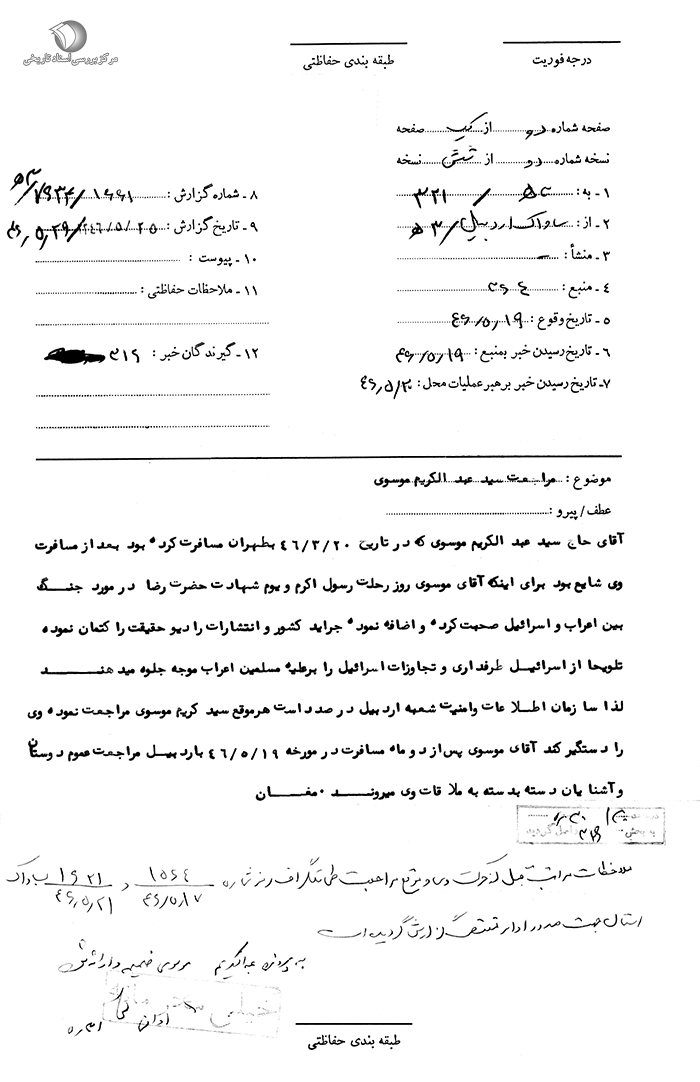 مرکز بررسی اسناد تاریخی
درجه فوریت
طبقه بندی حفاظتی
صفحه شماره دو از یک صفحه
نسخه شماره دو از شش نسخه
۱ - به : ۳۲۱ /
۲ - از : ساواک اردبیل / ۳ ه
۳ - منشأ : -
۴ - منبع :
۵ - تاریخ وقوع : ۴۶/۵/۱۹
۶ - تاریخ رسیدن خبر بمنبع : ۴۶/۵/۱۹
۷ - تاریخ رسیدن خبر برهبر عملیات محل : ۴۶/۵/۲۰
۸ - شماره گزارش :
۹ - تاریخ گزارش : ۴۶/۵/۲۵
۱۰ - پیوست :
۱۱ - ملاحظات حفاظتی :
۱۲ - گیرندگان خبر : ۳۱۶
موضوع : مراجعت سید عبدالکریم موسوی
عطف / پیرو :
آقای حاج سید عبدالکریم موسوی که در تاریخ ۴۶/۳/۲۰ بطهران مسافرت کرده بود بعد از مسافرت
وی شایع بود برای اینکه آقای موسوی روز رحلت رسول اکرم و یوم شهادت حضرت رضا در مورد جنگ
بین اعراب و اسرائیل صحبت کرده و اضافه نموده جراید کشور و انتشارات رادیو حقیقت را کتمان نموده
تلویحا از اسرائیل طرفداری و تجاوزات اسرائیل را برعلیه مسلمین اعراب موجه جلوه میدهند
لذا سازمان اطلاعات وامنیت شعبه اردبیل در صدد است هرموقع سید کریم موسوی مراجعت نموده وی
را دستگیر کند آقای موسوی پس از دو ماه مسافرت در مورخه ۴۶/۵/۱۹ باردبیل مراجعت عموم دوستان
و آشنایان دسته بدسته به ملاقات وی میروند ۰ مغان
به بخش ۳۱۶ واصل گردید
ملاحظات مراتب قبل از حرکت وی و موقع مراجعت طی تلگراف رمز شماره ۱۵۶۴ ۴۶/۵/۱۷ و ۱۶۲۱ ۴۶/۵/۲۱ بساواک
استان جهت صدور اوامر مقتضی گزارش گردیده است
به پرونده عبدالکریم موسوی ضمیمه و ارائه شود
طبقه بندی حفاظتی